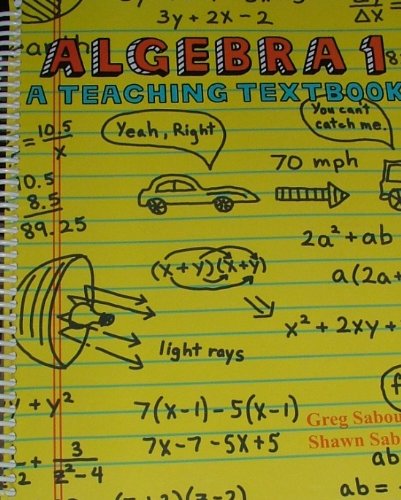 3y + 2x - 2
Δx =
ALGEBRA 1
A TEACHING TEXTBOOK
You can't
catch me.
Yeah, Right
= 10.5
x
70 mph
10.5
8.5
89.25
2a² + ab
(x+y)(x+y)
a(2a+
x² + 2xy +
light rays
+ y²
7(x-1) - 5(x-1)
Greg Sabou
7x - 7 - 5x + 5
Shawn Sab
+ 3
2 z² - 4
ab
ab =